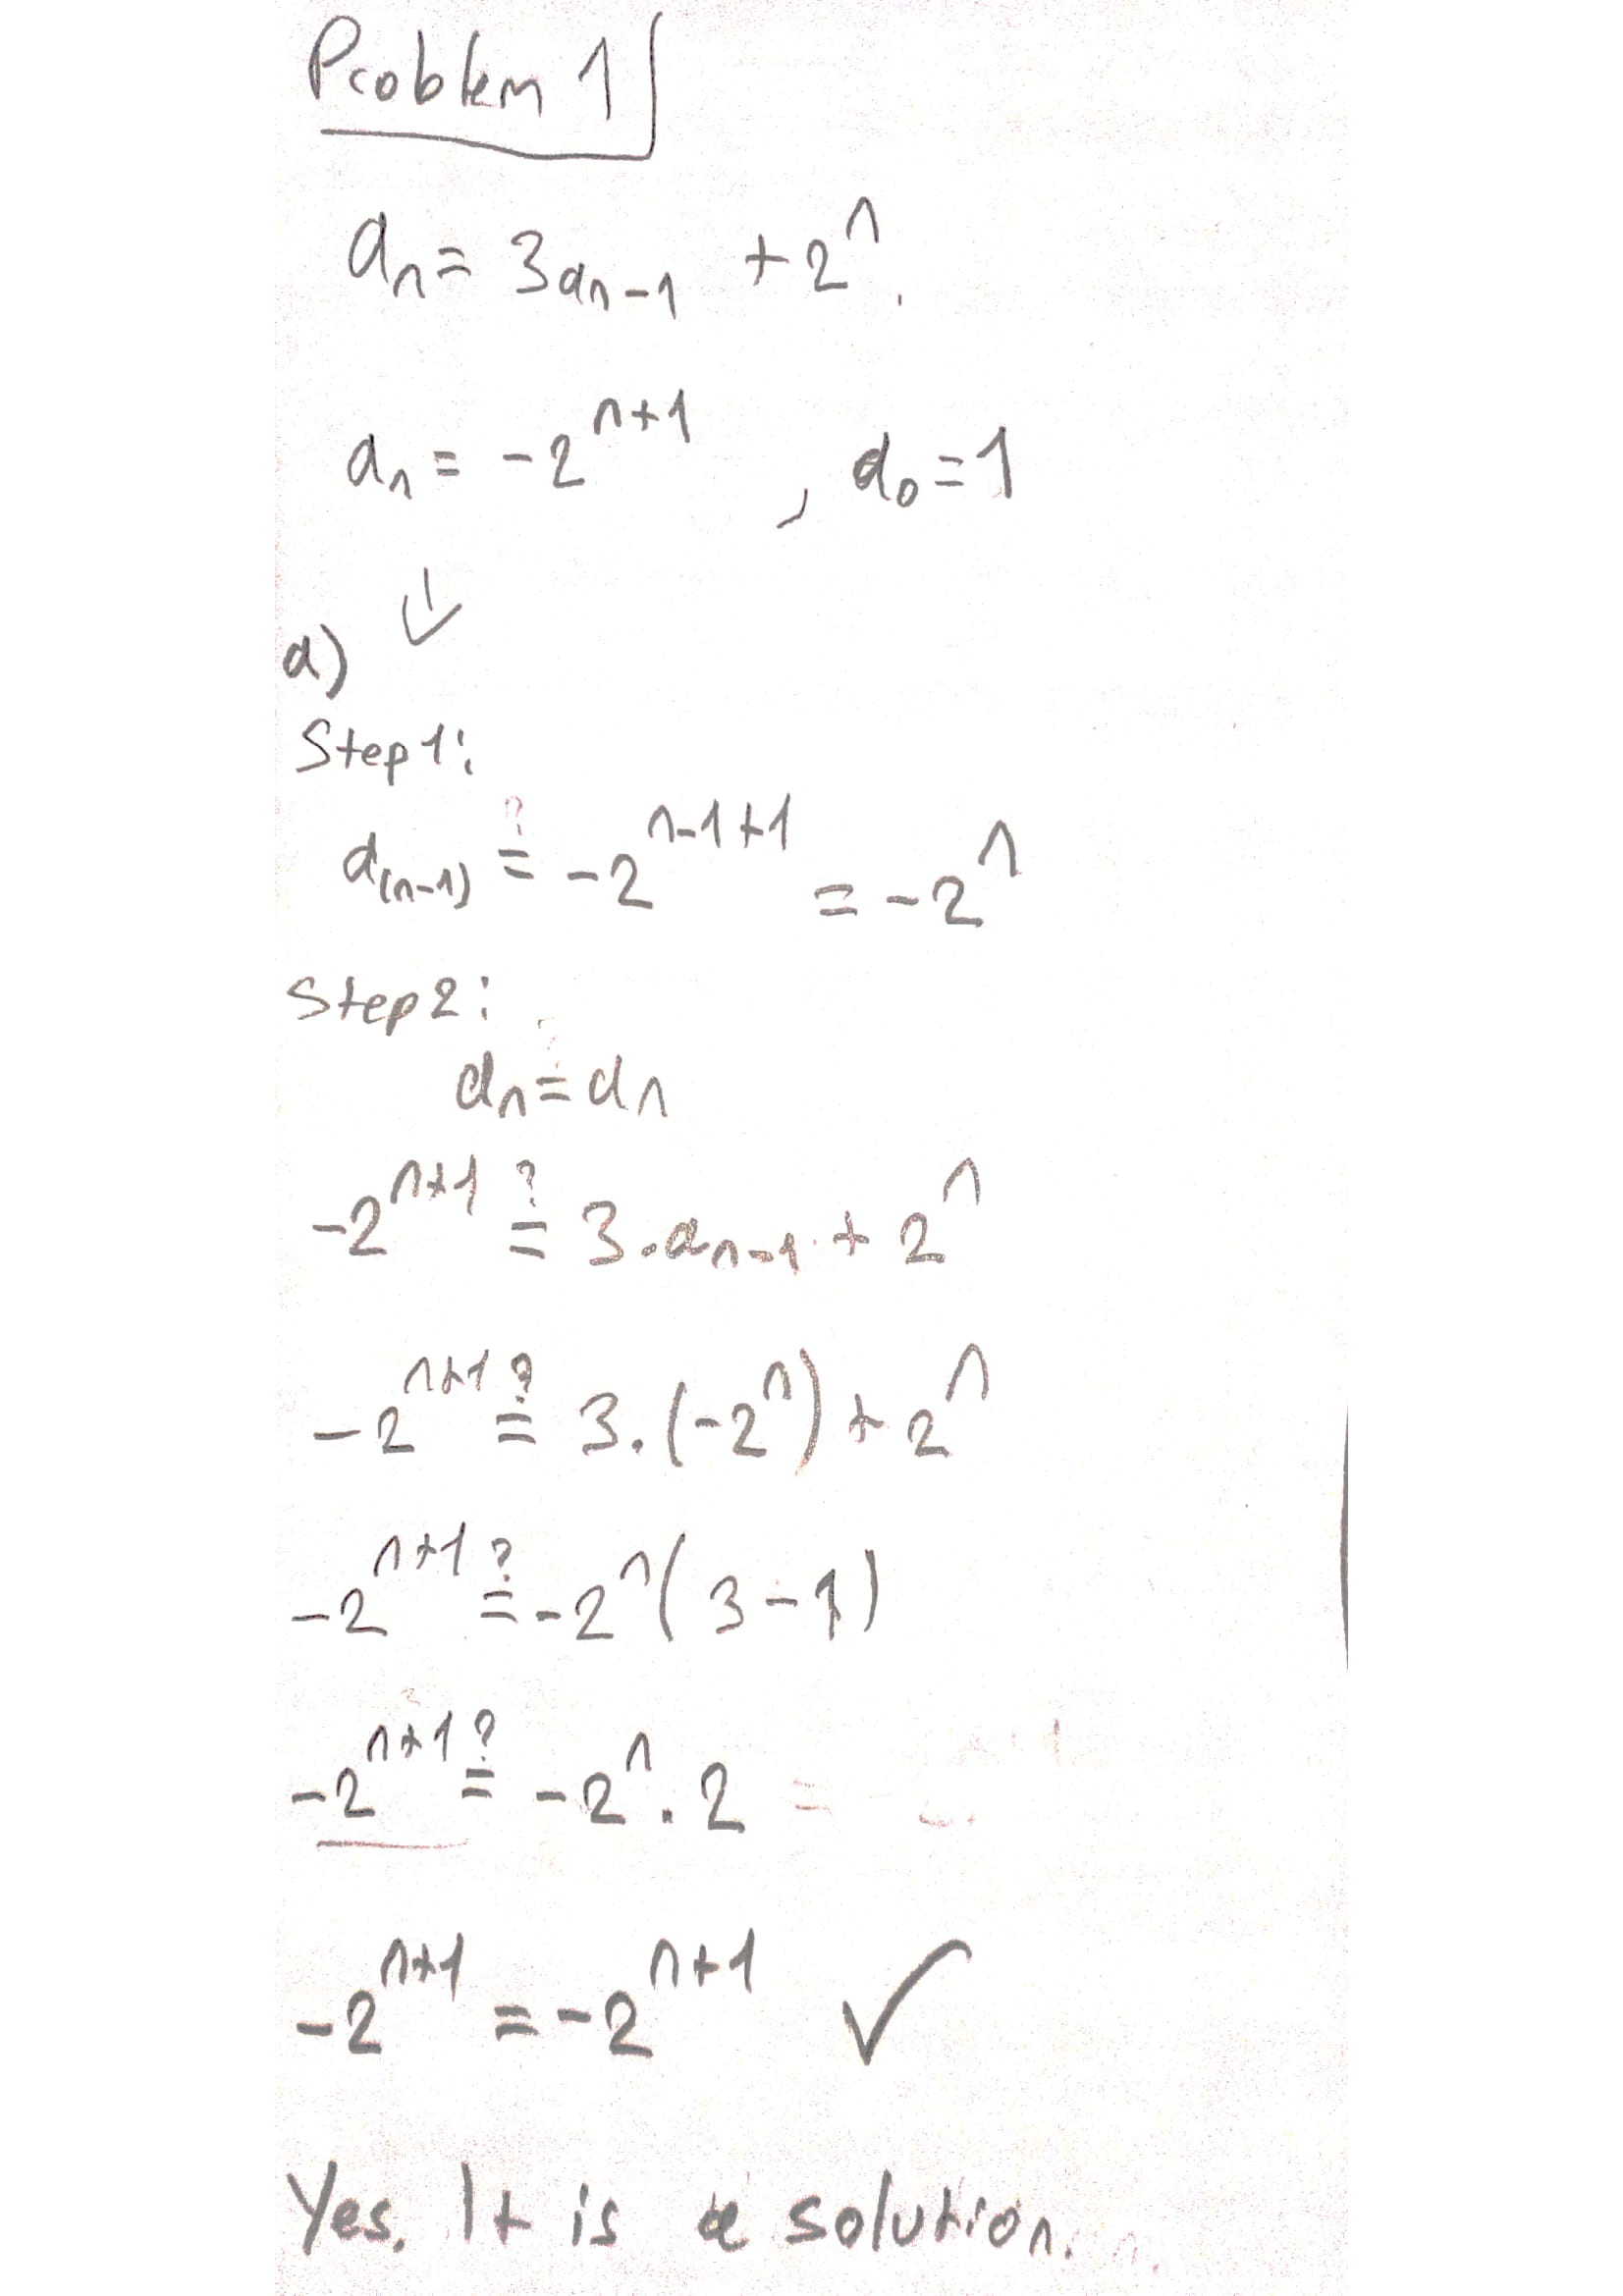 Problem 1
aₙ = 3aₙ₋₁ + 2ⁿ.
aₙ = -2ⁿ⁺¹ , a₀ = 1
↓
a)
Step 1:
a₍ₙ₋₁₎ ≟ -2ⁿ⁻¹⁺¹ = -2ⁿ
Step 2:
aₙ ≟ aₙ
-2ⁿ⁺¹ ≟ 3.aₙ₋₁ + 2ⁿ
-2ⁿ⁺¹ ≟ 3.(-2ⁿ) + 2ⁿ
-2ⁿ⁺¹ ≟ -2ⁿ(3-1)
-2ⁿ⁺¹ ≟ -2ⁿ.2
-2ⁿ⁺¹ = -2ⁿ⁺¹ ✓
Yes. It is a solution.